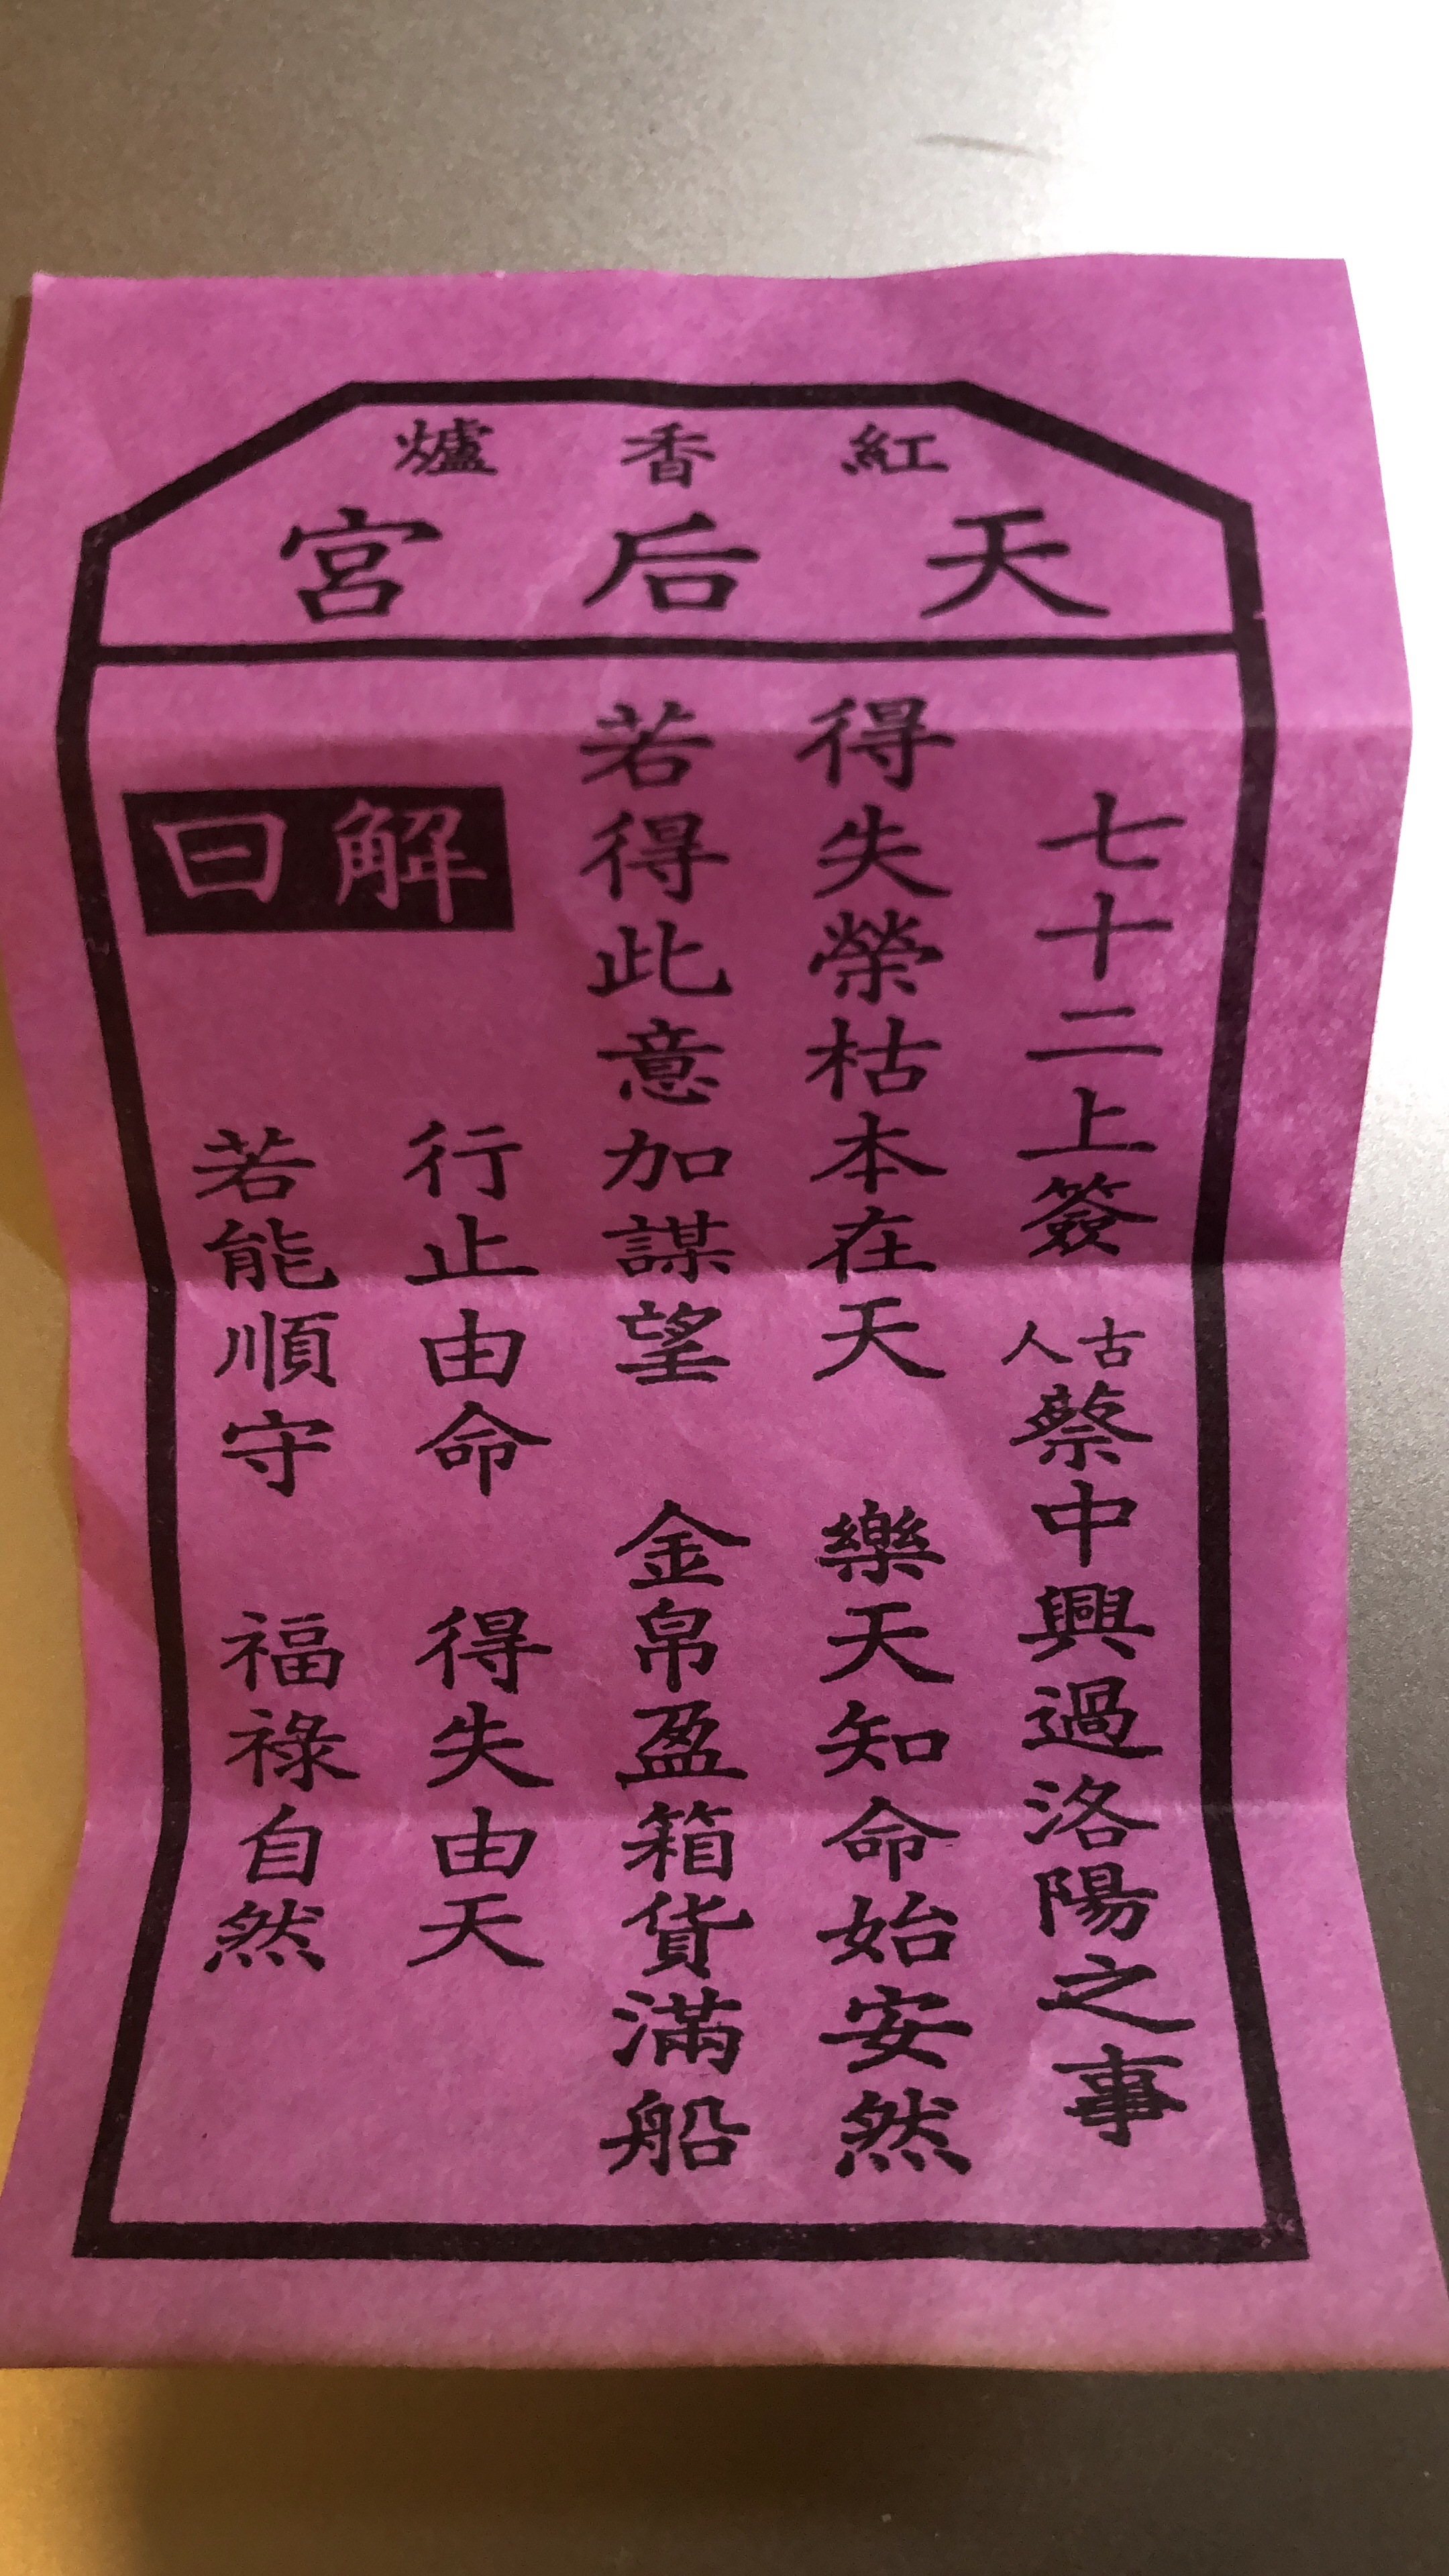 紅香爐
天后宮
七十二上簽 古人蔡中興過洛陽之事
得失榮枯本在天 樂天知命始安然
若得此意加謀望 金帛盈箱貨滿船
解曰
行止由命 得失由天
若能順守 福祿自然